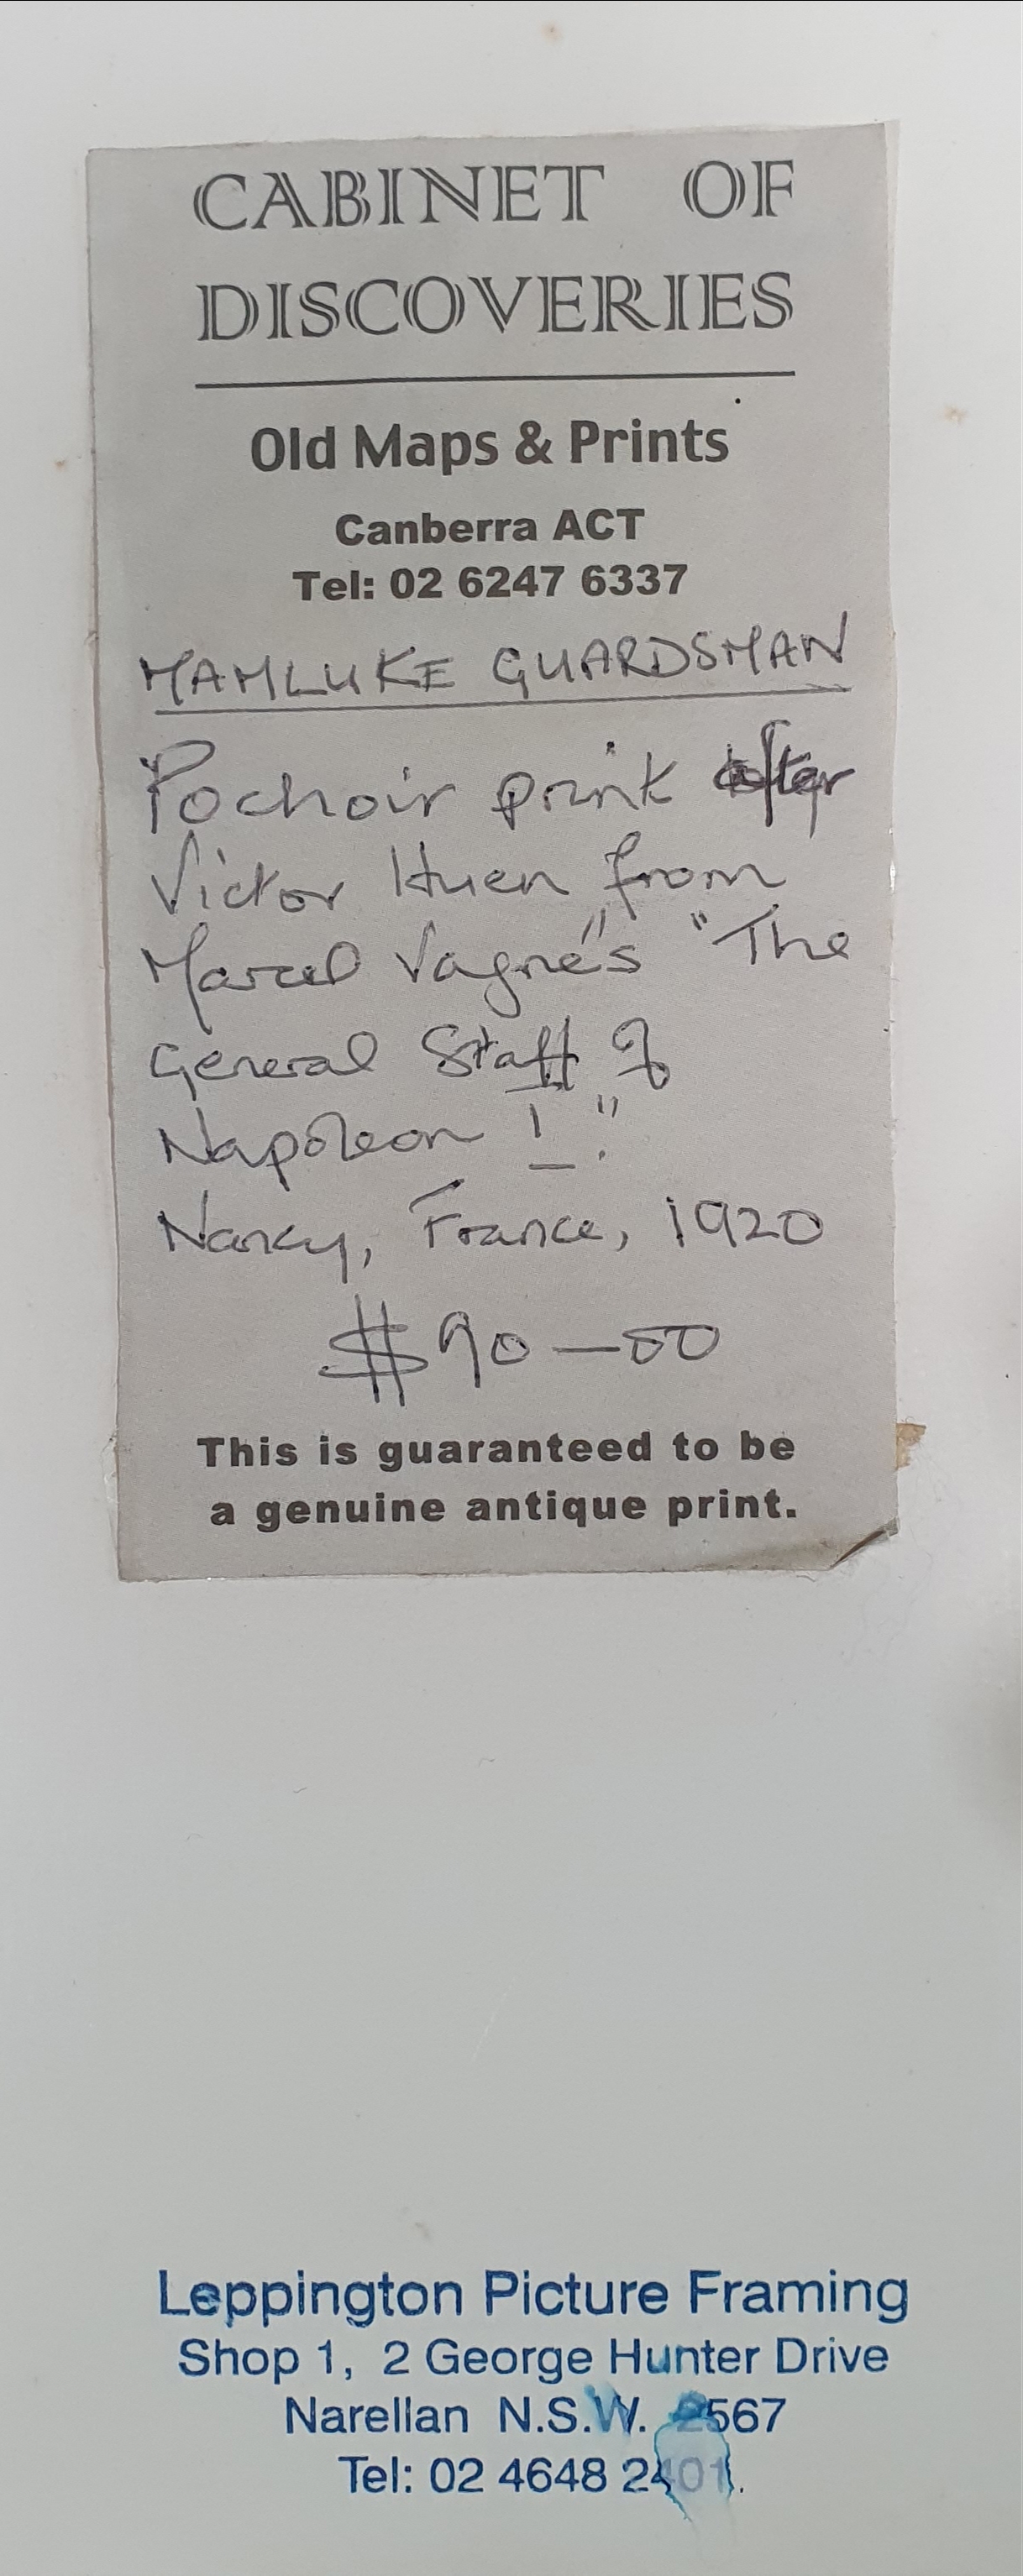 CABINET OF
DISCOVERIES
Old Maps & Prints
Canberra ACT
Tel: 02 6247 6337
MAMLUKE GUARDSMAN
Pochoir print after
Victor Huen from
Marcel Vagné's "The
General Staff of
Napoleon I".
Nancy, France, 1920
$90-00
This is guaranteed to be
a genuine antique print.
Leppington Picture Framing
Shop 1, 2 George Hunter Drive
Narellan N.S.W. 2567
Tel: 02 4648 2401.